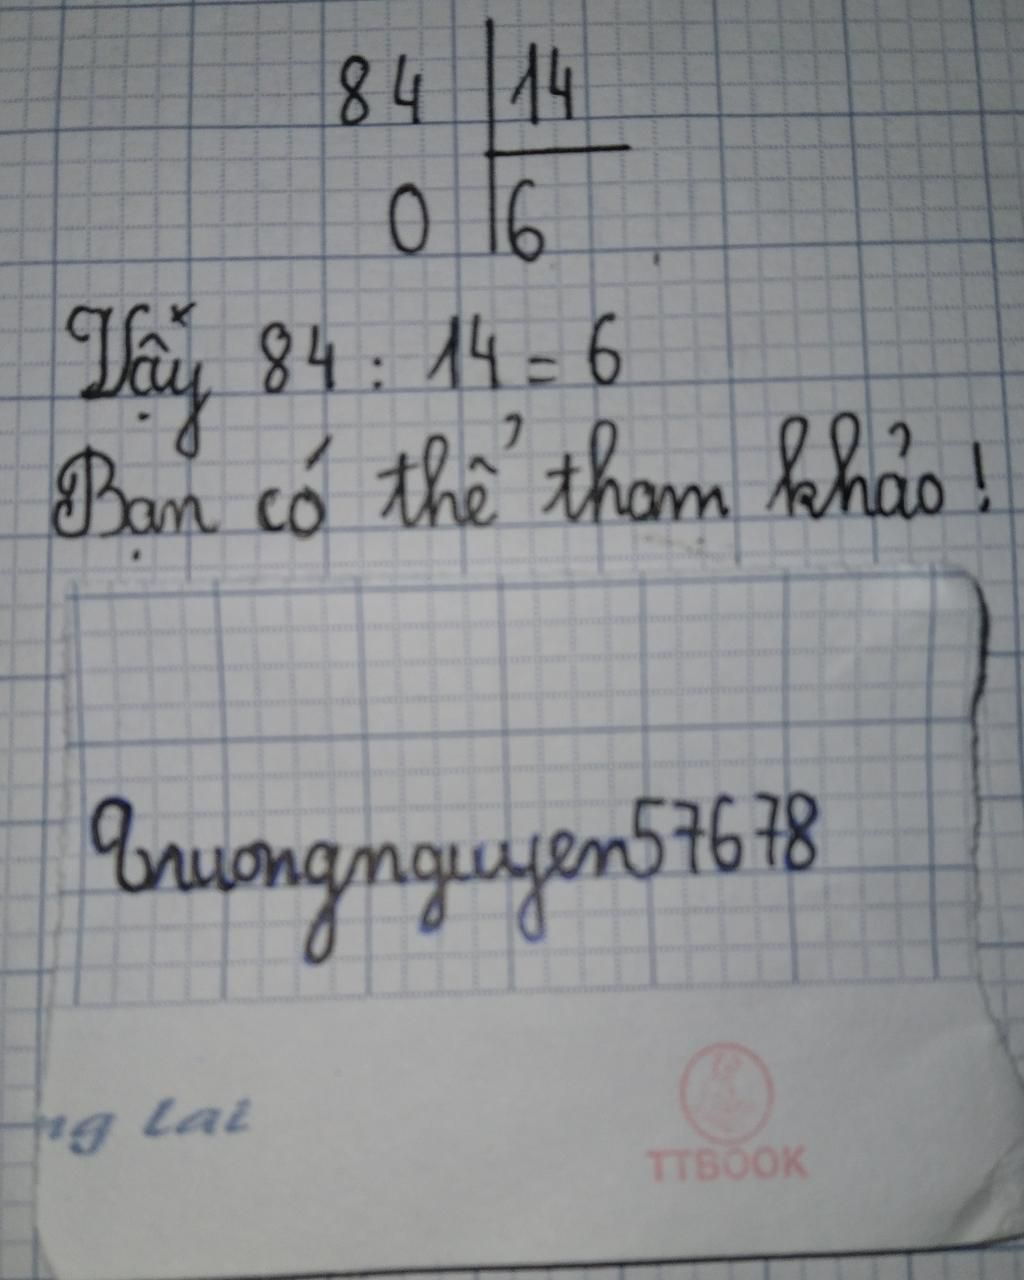 84 14
0 6
Vậy 84 : 14 = 6
Bạn có thể tham khảo!
Qnuongnguyen57678
ng lai
TTBOOK